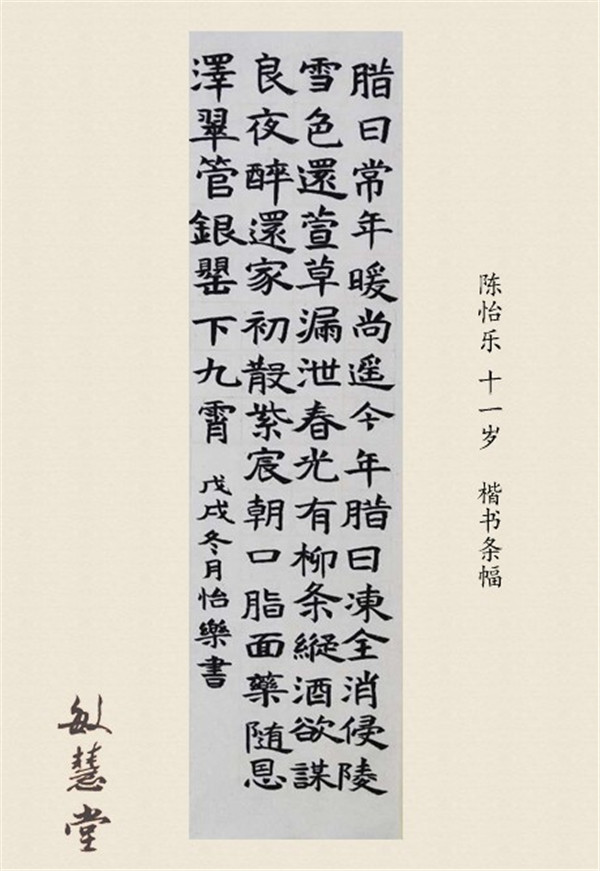 陈怡乐 十一岁 楷书条幅
腊日常年暖尚遥今年腊日凍全消侵陵
雪色還萱草漏泄春光有柳条縱酒欲謀
良夜醉還家初散紫宸朝口脂面藥随恩
澤翠管銀罌下九霄 戊戌冬月怡樂書
敏慧堂